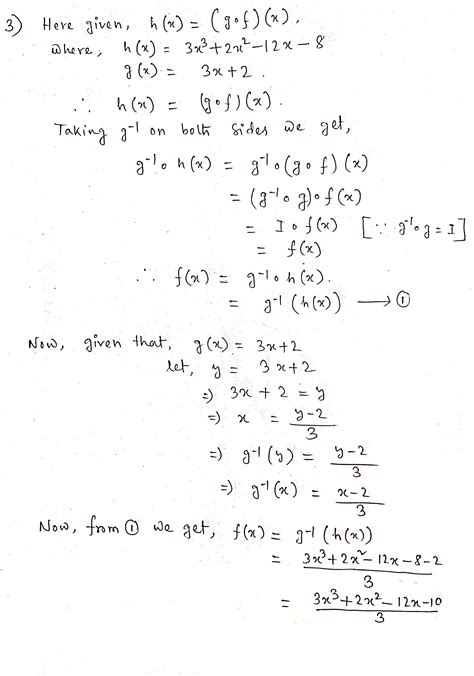 3) Here given, h(x) = (g∘f)(x),
where, h(x) = 3x³+2x²-12x-8
g(x) = 3x+2.
∴ h(x) = (g∘f)(x).
Taking g⁻¹ on both sides we get,
g⁻¹∘h(x) = g⁻¹∘(g∘f)(x)
= (g⁻¹∘g)∘f(x)
= I∘f(x) [∵ g⁻¹∘g = I]
= f(x)
∴ f(x) = g⁻¹∘h(x).
= g⁻¹(h(x)) → ①
Now, given that, g(x) = 3x+2
let, y = 3x+2
⇒ 3x+2 = y
⇒ x = (y-2)/3
⇒ g⁻¹(y) = (y-2)/3
⇒ g⁻¹(x) = (x-2)/3
Now, from ① we get, f(x) = g⁻¹(h(x))
= (3x³+2x²-12x-8-2)/3
= (3x³+2x²-12x-10)/3